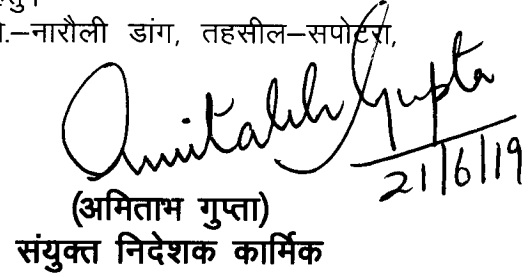 .–नारौली डांग, तहसील–सपोटरा,
Amitabh Gupta
21/6/19
(अमिताभ गुप्ता)
संयुक्त निदेशक कार्मिक